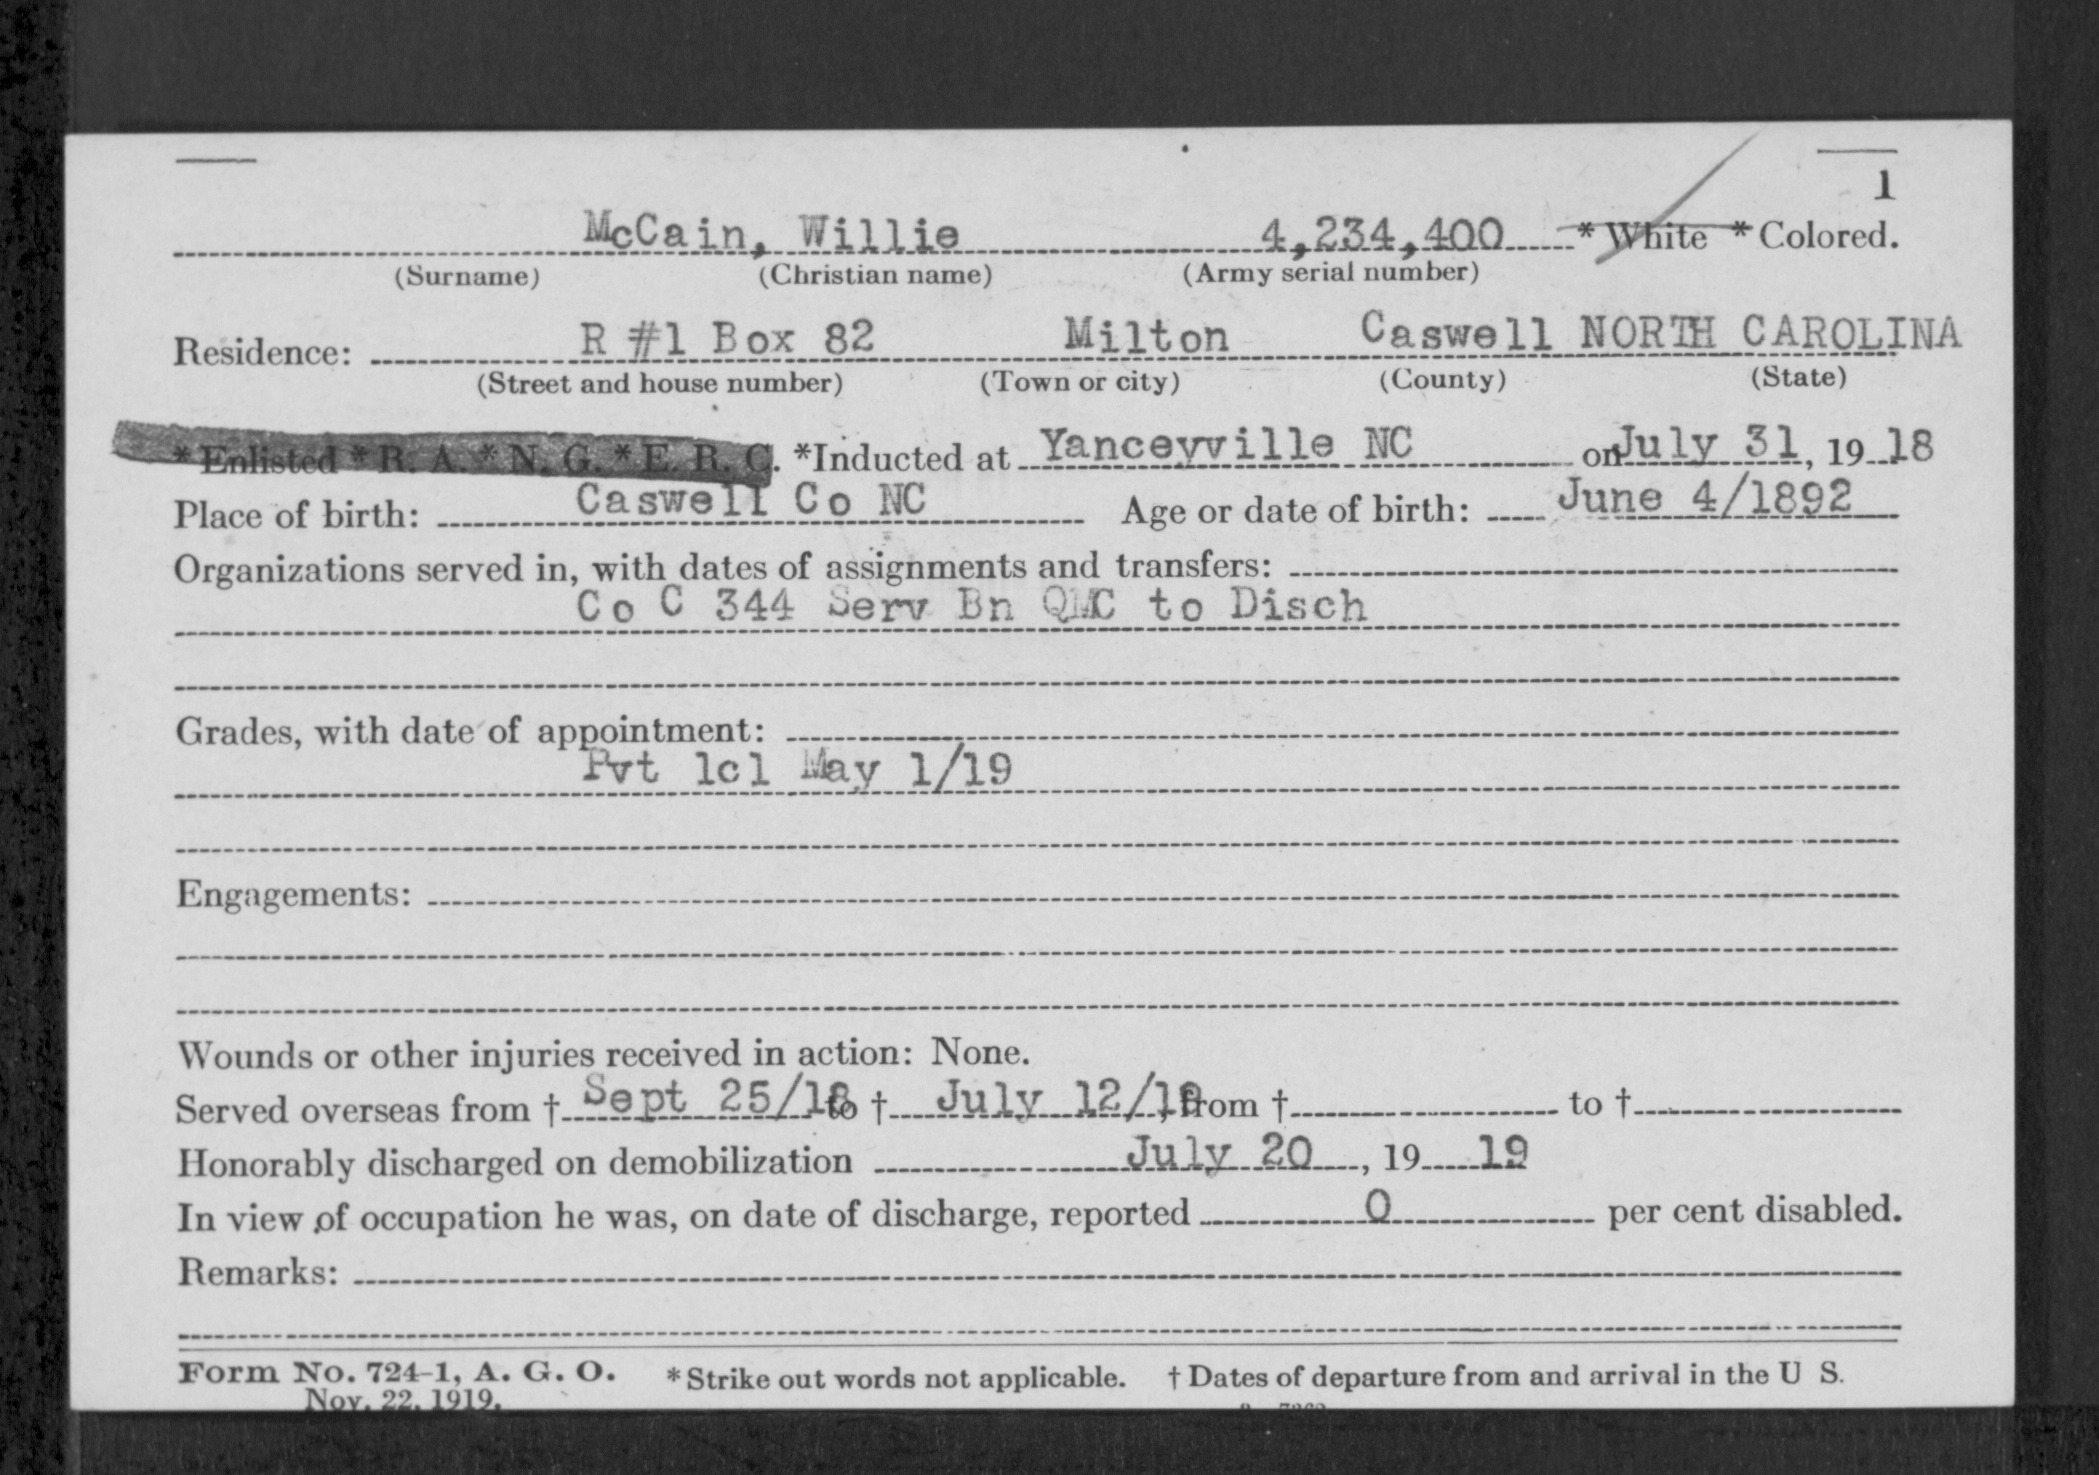 1
McCain, Willie 4,234,400 * White * Colored.
(Surname) (Christian name) (Army serial number)
Residence: R #1 Box 82 Milton Caswell NORTH CAROLINA
(Street and house number) (Town or city) (County) (State)
* Enlisted * R. A. * N. G. * E. R. C. *Inducted at Yanceyville NC on July 31, 19 18
Place of birth: Caswell Co NC Age or date of birth: June 4/1892
Organizations served in, with dates of assignments and transfers:
Co C 344 Serv Bn QMC to Disch
Grades, with date of appointment:
Pvt 1cl May 1/19
Engagements:
Wounds or other injuries received in action: None.
Served overseas from † Sept 25/18 to † July 12/19, from † to †
Honorably discharged on demobilization July 20, 19 19
In view of occupation he was, on date of discharge, reported 0 per cent disabled.
Remarks:
Form No. 724-1, A. G. O. * Strike out words not applicable. † Dates of departure from and arrival in the U S.
Nov. 22, 1919.